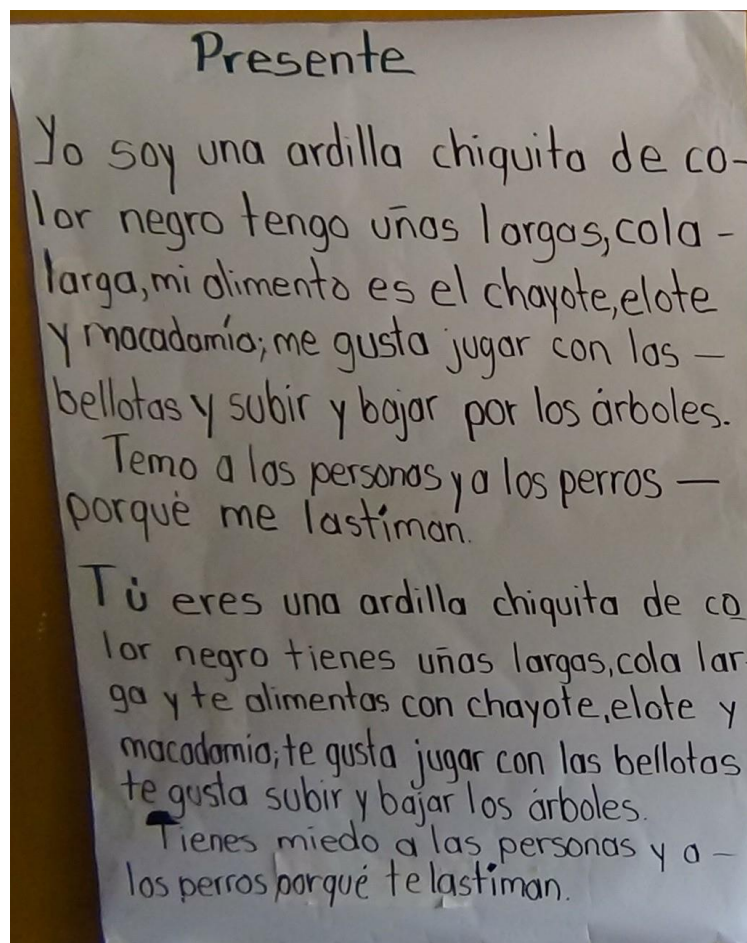 Presente
Yo soy una ardilla chiquita de co-
lor negro tengo uñas largas, cola -
larga, mi alimento es el chayote, elote
y macadamía; me gusta jugar con las —
bellotas y subir y bajar por los árboles.
Temo a las personas y a los perros —
porqué me lastiman.
Tú eres una ardilla chiquita de co
lor negro tienes uñas largas, cola lar-
ga y te alimentas con chayote, elote y
macadamia; te gusta jugar con las bellotas
te gusta subir y bajar los árboles.
Tienes miedo a las personas y a —
los perros porqué te lastiman.